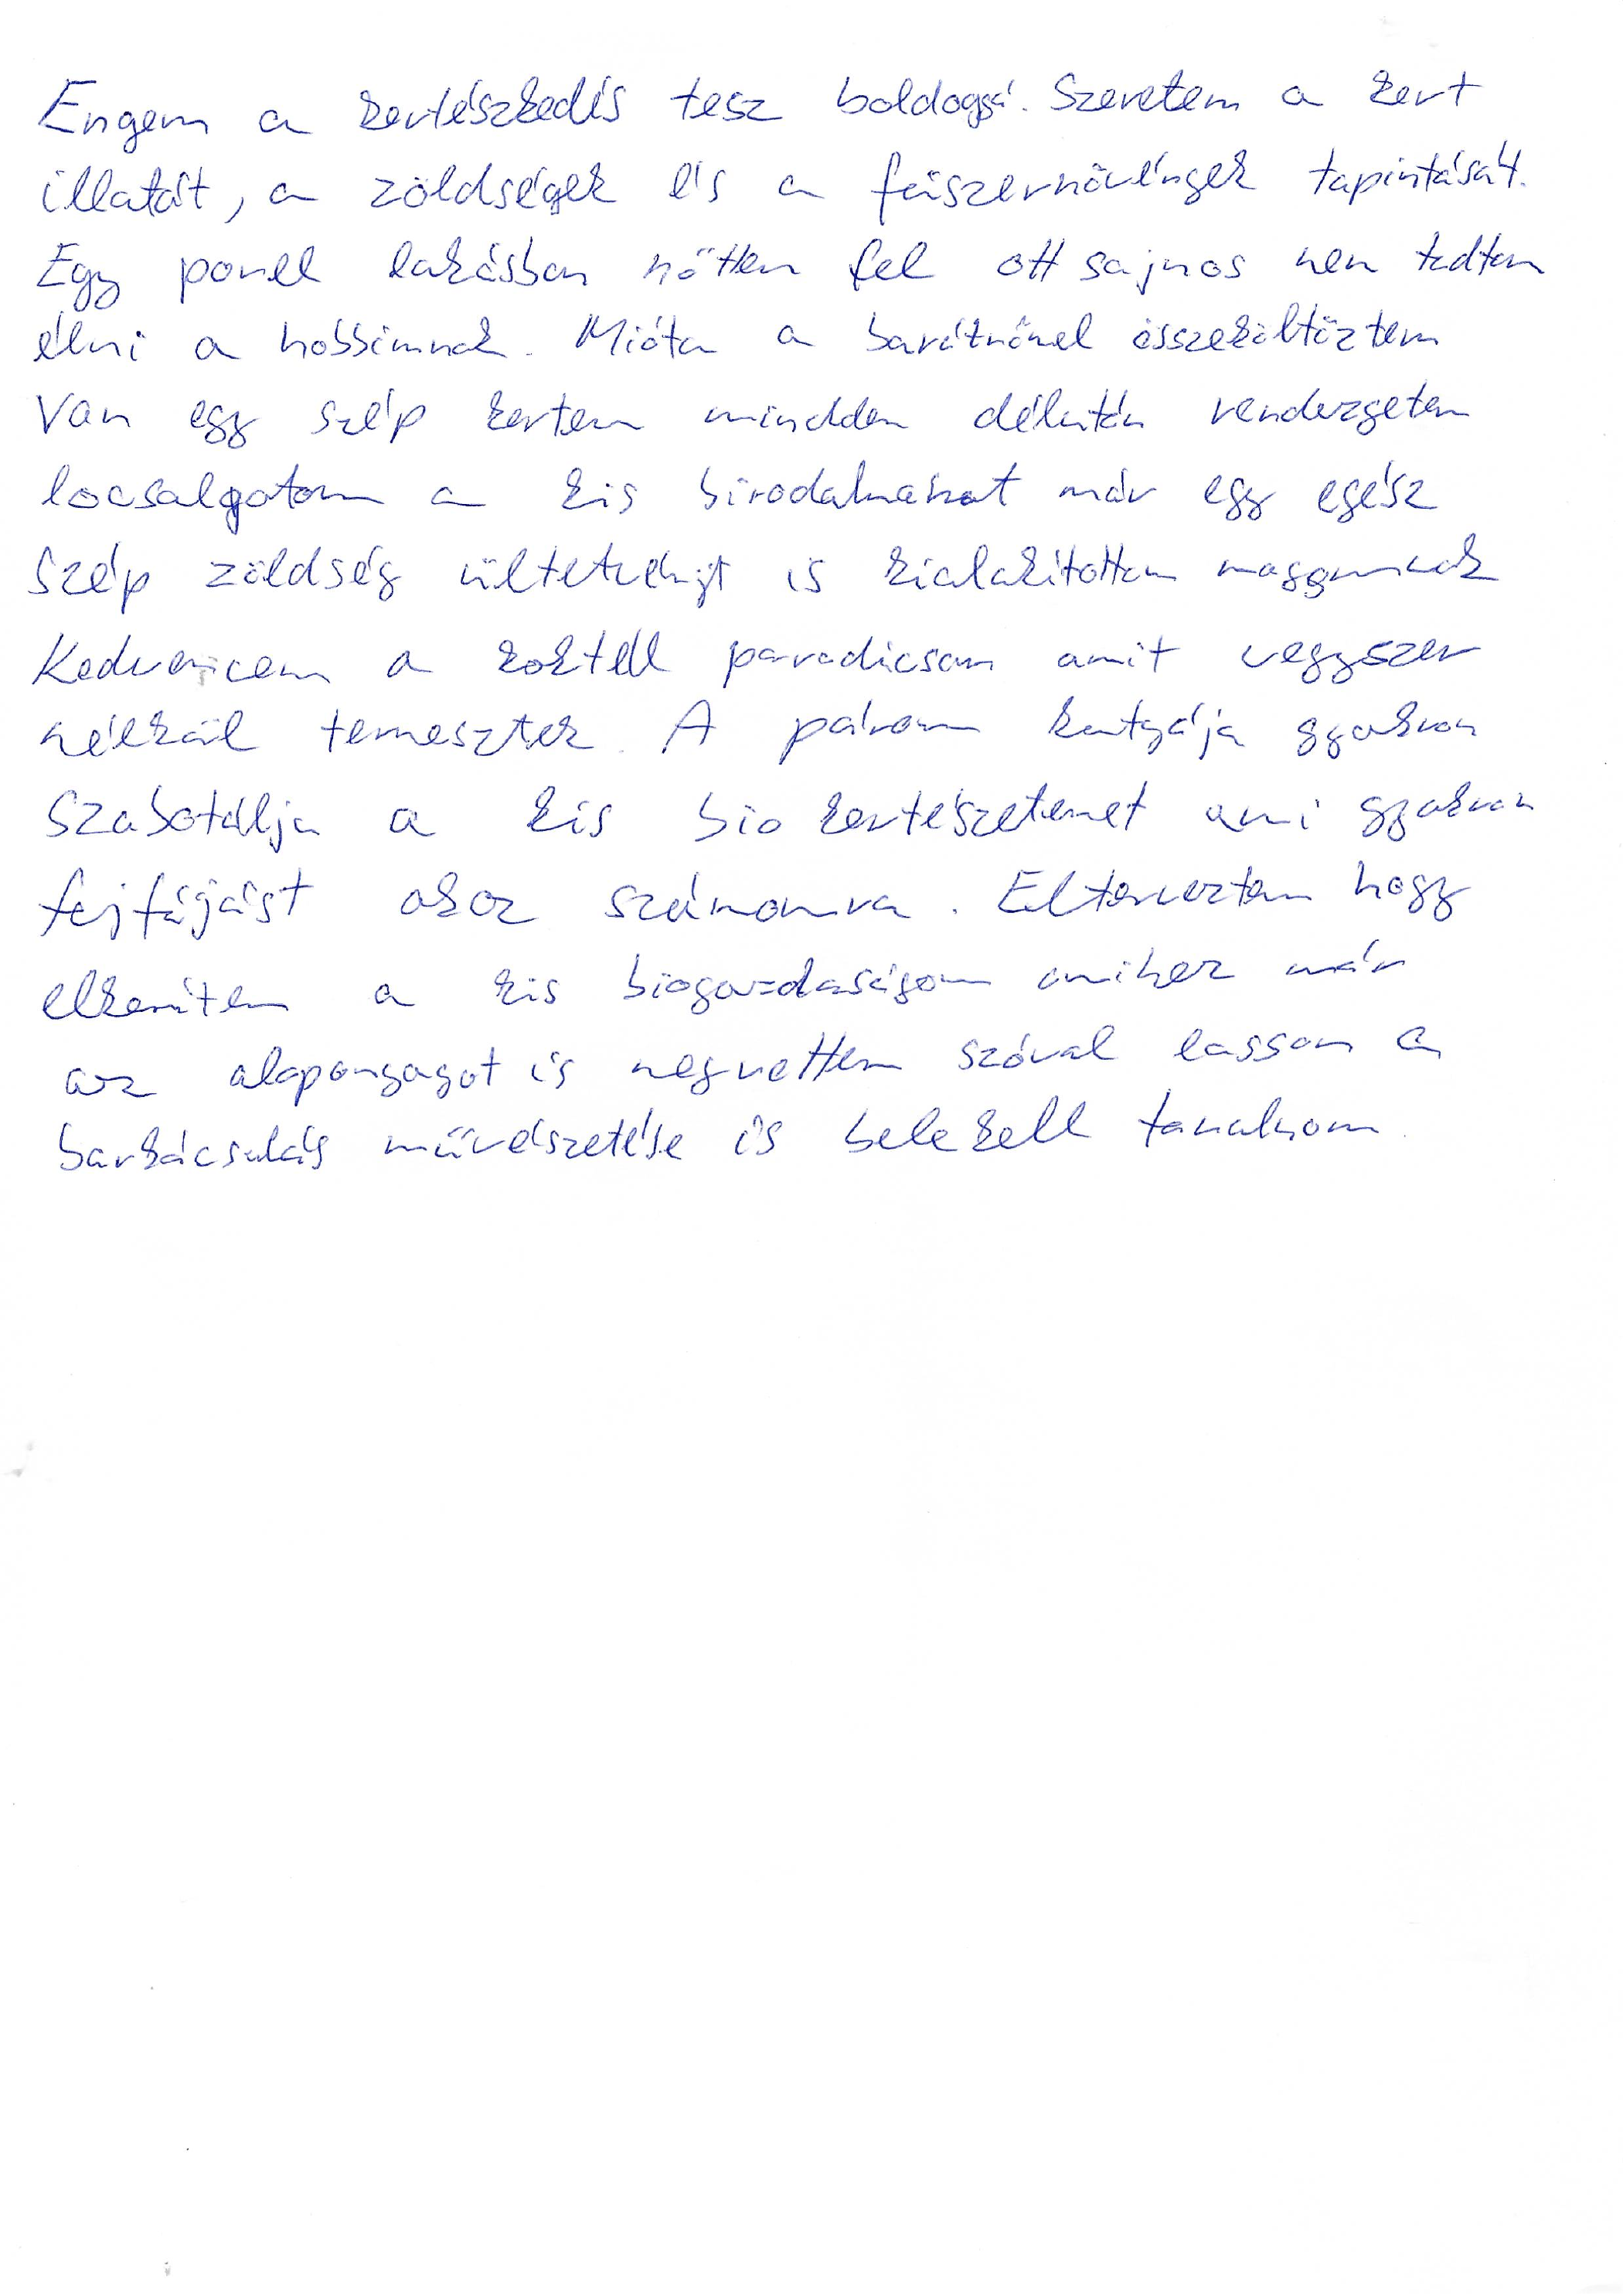 Engem a kertészkedés tesz boldoggá. Szeretem a kert
illatát, a zöldségek és a fűszernövények tapintását.
Egy panel lakásban nőttem fel ott sajnos nem tudtam
élni a hobbimnak. Mióta a barátnőmel összeköltöztem
van egy szép kertem minden délután rendezgetem
locsolgatom a kis birodalmamat már egy egész
szép zöldség ültetvényt is kialakítottam magamnak
Kedvencem a koktél paradicsom amit vegyszer
nélkül termesztek. A párom kutyája gyakran
szabotálja a kis bio kertészetemet ami gyakran
fejfájást okoz számomra. Elterveztem hogy
elkerítem a kis biogazdaságom amihez már
az alapanyagot is megvettem szóval lassan a
barkácsolás művészetébe is bele kell tanulnom.